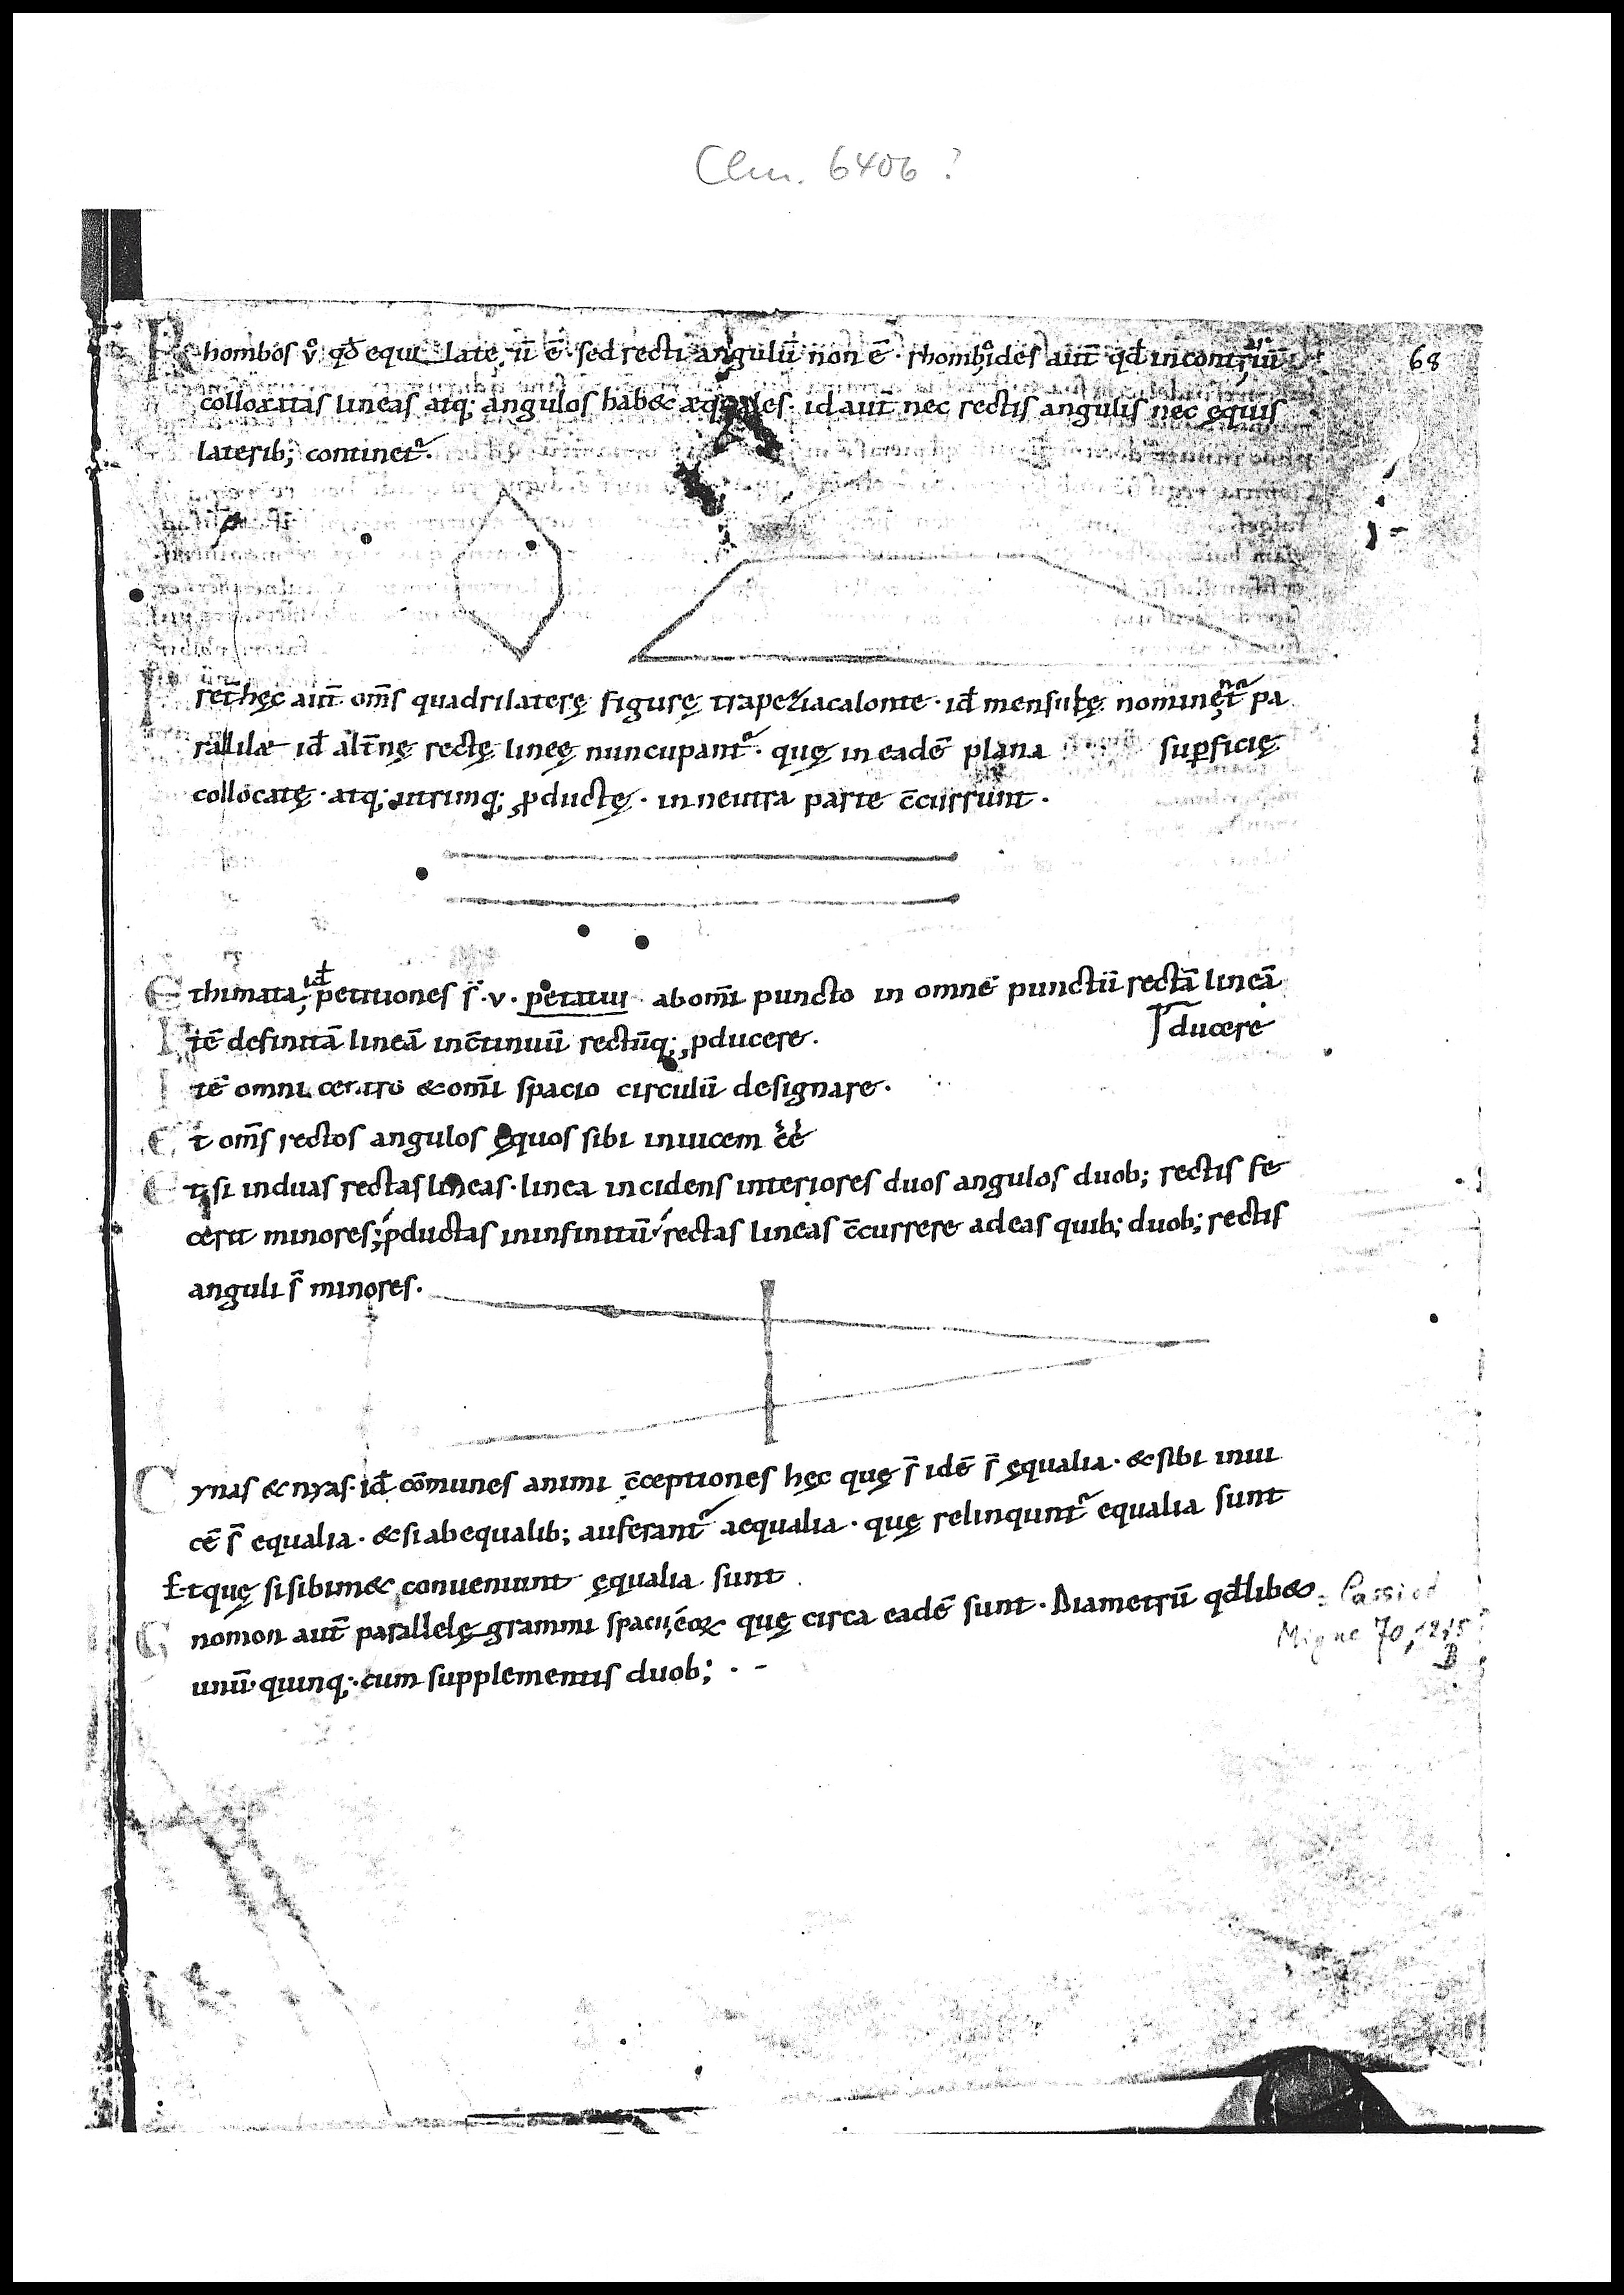 Clm. 6406 ?
68
Rhombos v̊ qđ equi late ŗ ū ē · sed recti angulū non ē · rhomboides aut̄ qđ in contrariū
collocatas lineas atq; angulos hab& æquales · id aut̄ nec rectis angulis nec ęquis
laterib; continet᷑.
P̱ret hęc aut̄ om̄s quadrilaterę figurę trapezia calonte · iđ mensulę nominent᷑ pa
rallilæ iđ alt̄nę rectę lineę nuncupant᷑ · quę in eadē plana suꝑficię
collocatę · atq; utrimq; ꝓductę · in neutra parte c̄currunt ·
Ethimata, iđ petitiones s̄ · v · petitui ab om̄i puncto in omnē punctū rectā lineā
ducere
Itē definitā lineā in c̄tinuū rectūq; ꝓducere.
Itē omni centro & om̄i spacio circulū designare.
Et om̄s rectos angulos ęquos sibi inuicem ēē
Et si in duas rectas lineas · linea incidens interiores duos angulos duob; rectis fe
cerit minores; ꝓductas in infinitū rectas lineas c̄currere ad eas quib; duob; rectis
anguli s̄ minores.
Cynas & nyas · iđ cōmunes animi c̄ceptiones hęc quę s̄ idē s̄ ęqualia · & sibi inui
cē s̄ equalia · & si ab equalib; auferant᷑ aequalia · quę relinqunt᷑ equalia sunt
Et quę si sibimet conueniunt ęqualia sunt
Gnomon aut̄ parallelę grammi spacii, eoꝝ quę circa eadē sunt · Diametrū qđlib& = Cassiod
Migne 70, 1215
B
unū quinq; · cum supplementis duob; · -